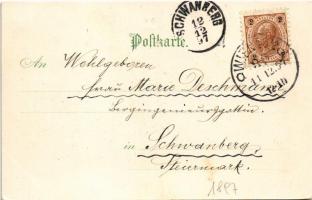 SCHWANBERG
12
12
97
Postkarte.
2 2
11.12.97
An Wohlgeboren
Frau Marie Deschmann
Bergingenieursgattin
in Schwanberg,
Steiermark.
1897